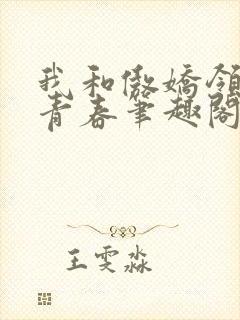 我和傲娇领
青春笔趣阁
王雯淼